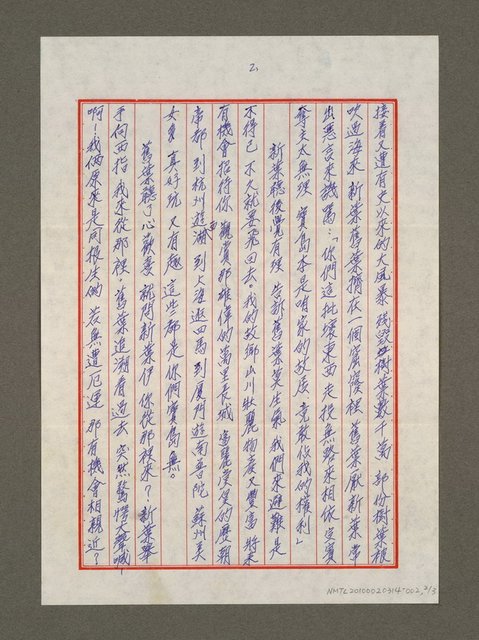 2.
接着又遭有史以來的大風暴 殘毀樹葉數千萬 部份樹葉被
吹過海來 新葉舊葉擠在一個窩蓬裡 舊葉厭新葉 常
出惡言來譏罵：「你們這批壞東西 走投無路來相依 定實
奪主太無理 寶島本是咱家的故居 竟敢佔我的權利」
新葉聽後覺有理 告訴舊葉莫生氣 我們來避難是
不得已 不久就要飛回去。我的故鄉山川壯麗物產又豐富 將來
有機會招待你 觀賞那雄偉的萬里長城 富麗堂皇的歷朝
帝都 到杭州遊西湖 到上海逛四馬 到廈門遊南普陀 蘇州美
女多 真好玩 又有趣 這些都是你們寶島無。
舊葉聽了心歡喜 就問新葉伊 你從那裡來？新葉舉
手向西指 我來從那裡。舊葉追溯看過去 突然驚愕大聲喊叫
啊！我倆原來是同根生的 若無遭厄運 那有機會相親近？
NMTL20100020314-002, 2/3